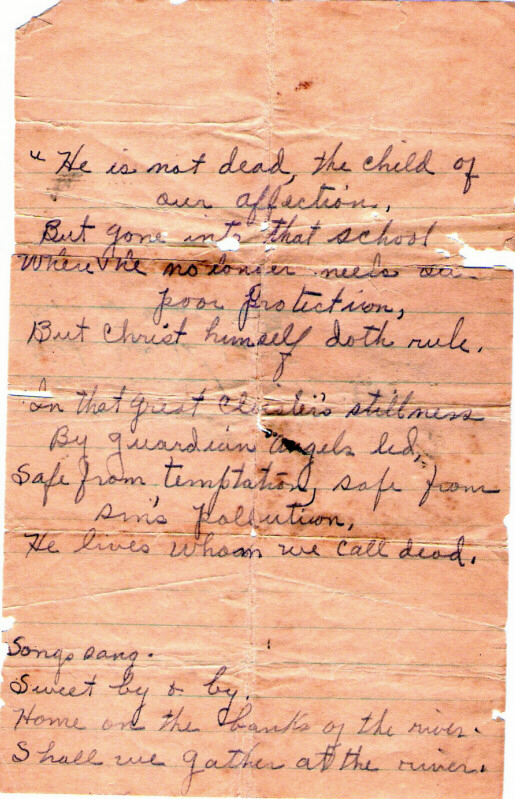 "He is not dead, the child of
our affection,
But gone into that school
Where he no longer needs our
poor protection,
But Christ himself doth rule.
In that great Cloister's stillness
By guardian angels led,
Safe from temptation, safe from
sin's pollution,
He lives whom we call dead.
Songs sang.
Sweet by & by.
Home on the banks of the river.
Shall we gather at the river.